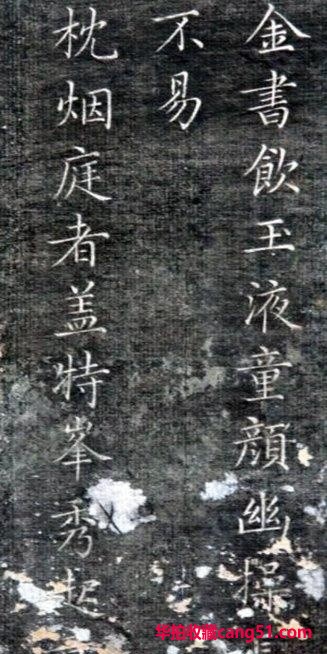 金書飲玉液童顔幽操
不易
枕烟庭者盖特峯秀起
华拍收藏cang51.com